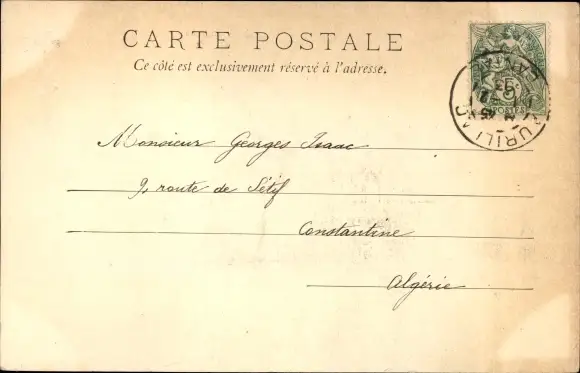 CARTE POSTALE
Ce côté est exclusivement réservé à l'adresse.
POSTES
AURILLAC
CANTAL
Monsieur Georges Isaac
9 route de Sétif
Constantine
Algérie